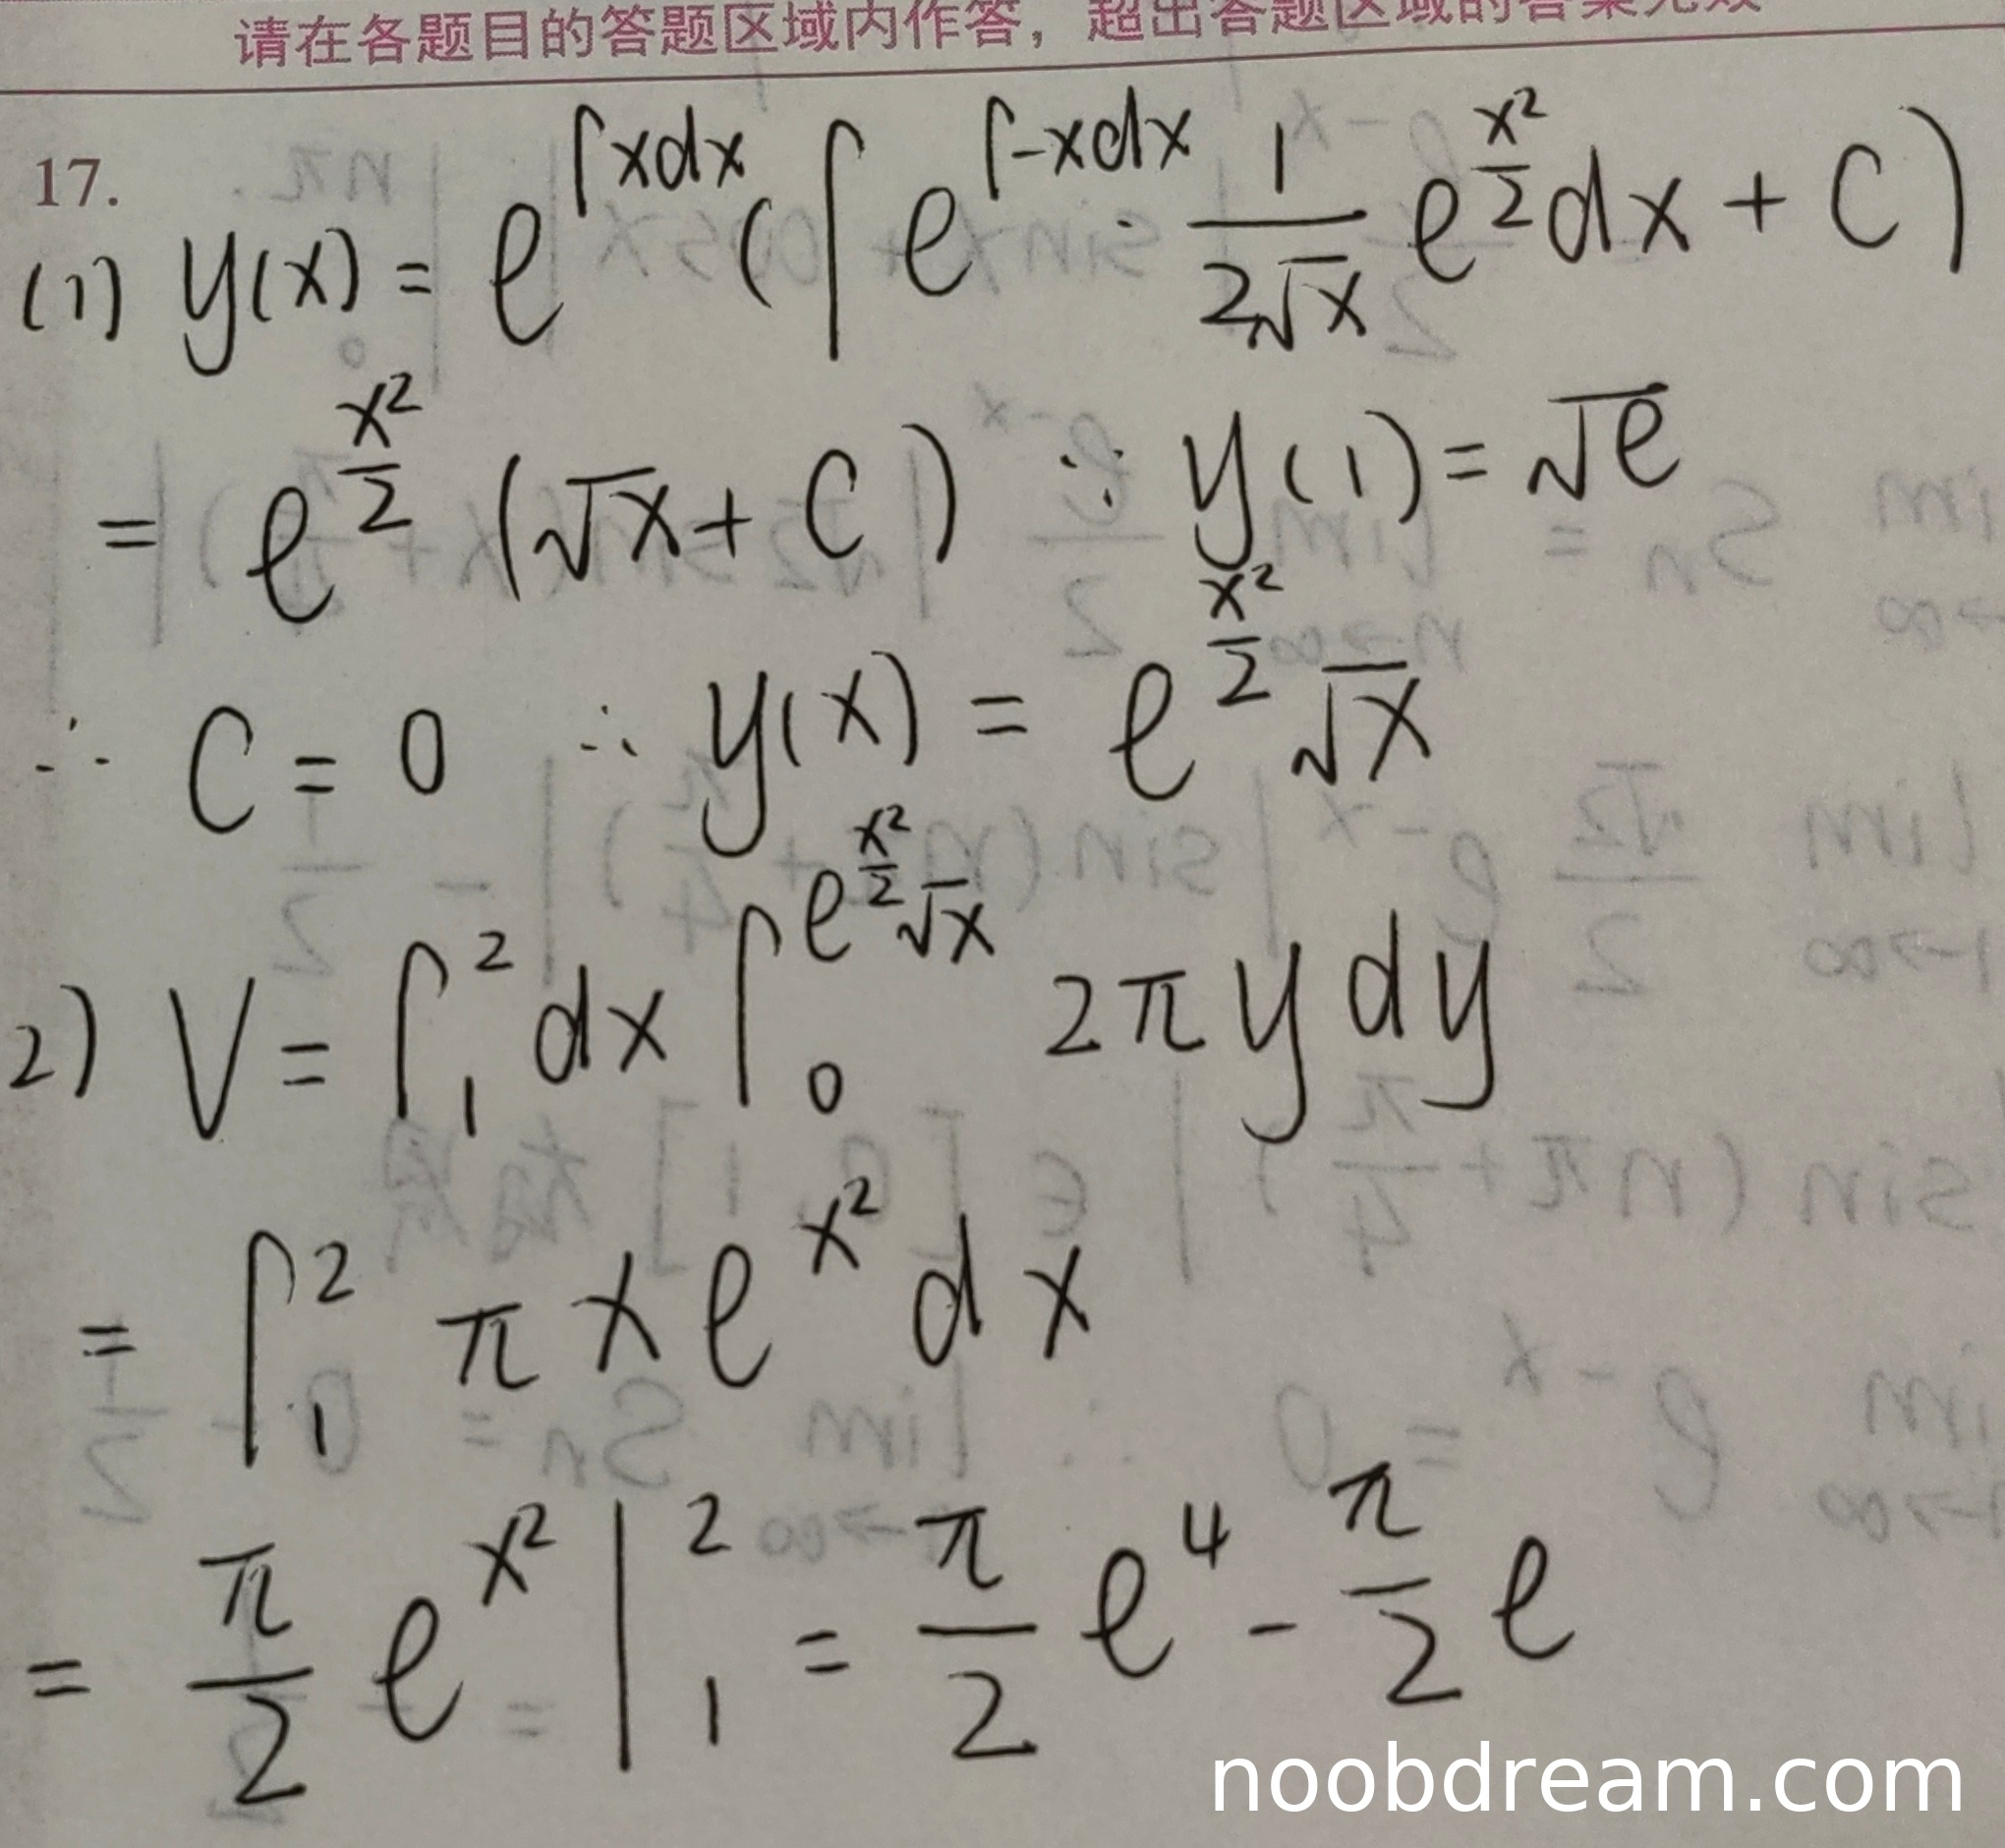 请在各题目的答题区域内作答，超出答题区域的答案无效
17.
(1) y(x) = e^{∫xdx} (∫ e^{∫-xdx} · \frac{1}{2\sqrt{x}} e^{\frac{x^2}{2}} dx + C)
= e^{\frac{x^2}{2}} (\sqrt{x} + C) ∵ y(1) = \sqrt{e}
∴ C = 0 ∴ y(x) = e^{\frac{x^2}{2}} \sqrt{x}
2) V = ∫_1^2 dx ∫_0^{e^{\frac{x^2}{2}} \sqrt{x}} 2πy dy
= ∫_1^2 πx e^{x^2} dx
= \frac{π}{2} e^{x^2} |_1^2 = \frac{π}{2} e^4 - \frac{π}{2} e
noobdream.com